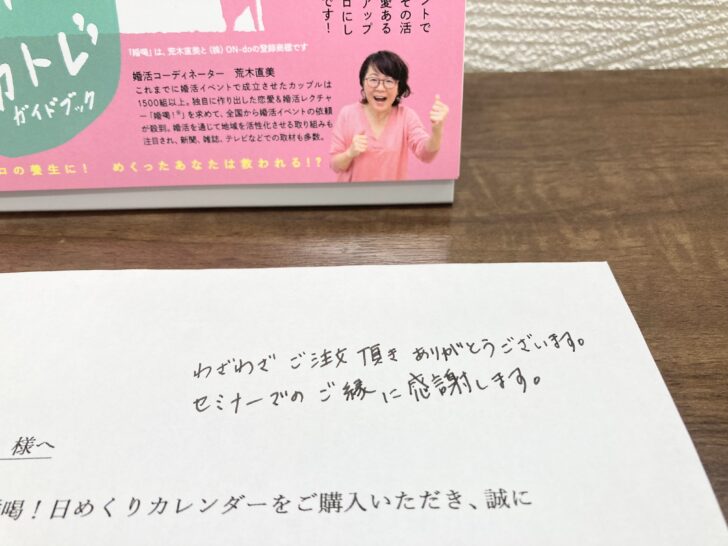 ントで
その活
愛ある
アップ
ロにし
です！
カトレ
ガイドブック
「婚喝」は、荒木直美と（株）ON-doの登録商標です
婚活コーディネーター　荒木直美
これまでに婚活イベントで成立させたカップルは
1500組以上。独自に作り出した恋愛＆婚活レクチャ
ー「婚喝！®」を求めて、全国から婚活イベントの依頼
が殺到。婚活を通じて地域を活性化させる取り組みも
注目され、新聞、雑誌、テレビなどでの取材も多数。
ロの養生に！　めくったあなたは救われる！？
わざわざ ご注文 頂き ありがとうございます。
セミナーでの ご縁 に 感謝します。
様へ
喝！日めくりカレンダーをご購入いただき、誠に